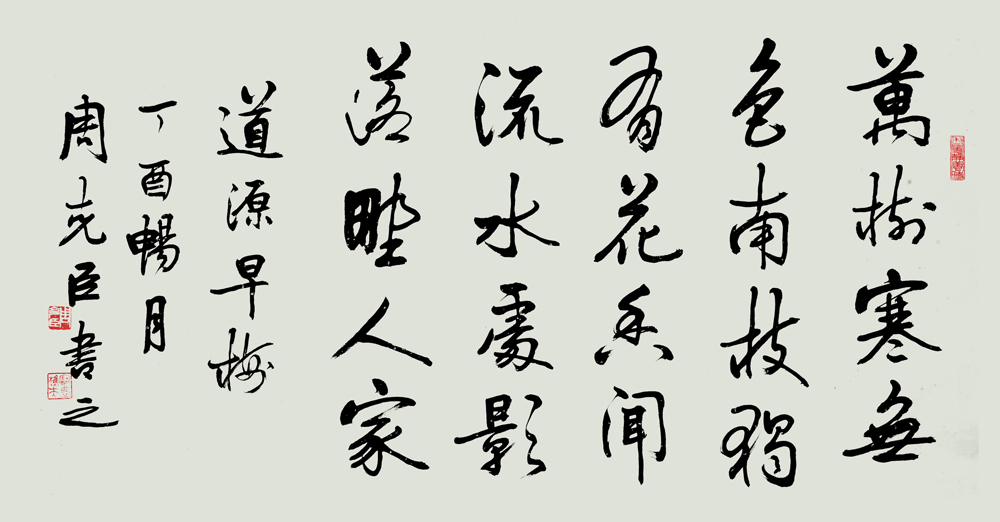 萬樹寒無
色南枝獨
有花香聞
流水處影
落野人家
道源早梅
丁酉暢月
周克臣書之